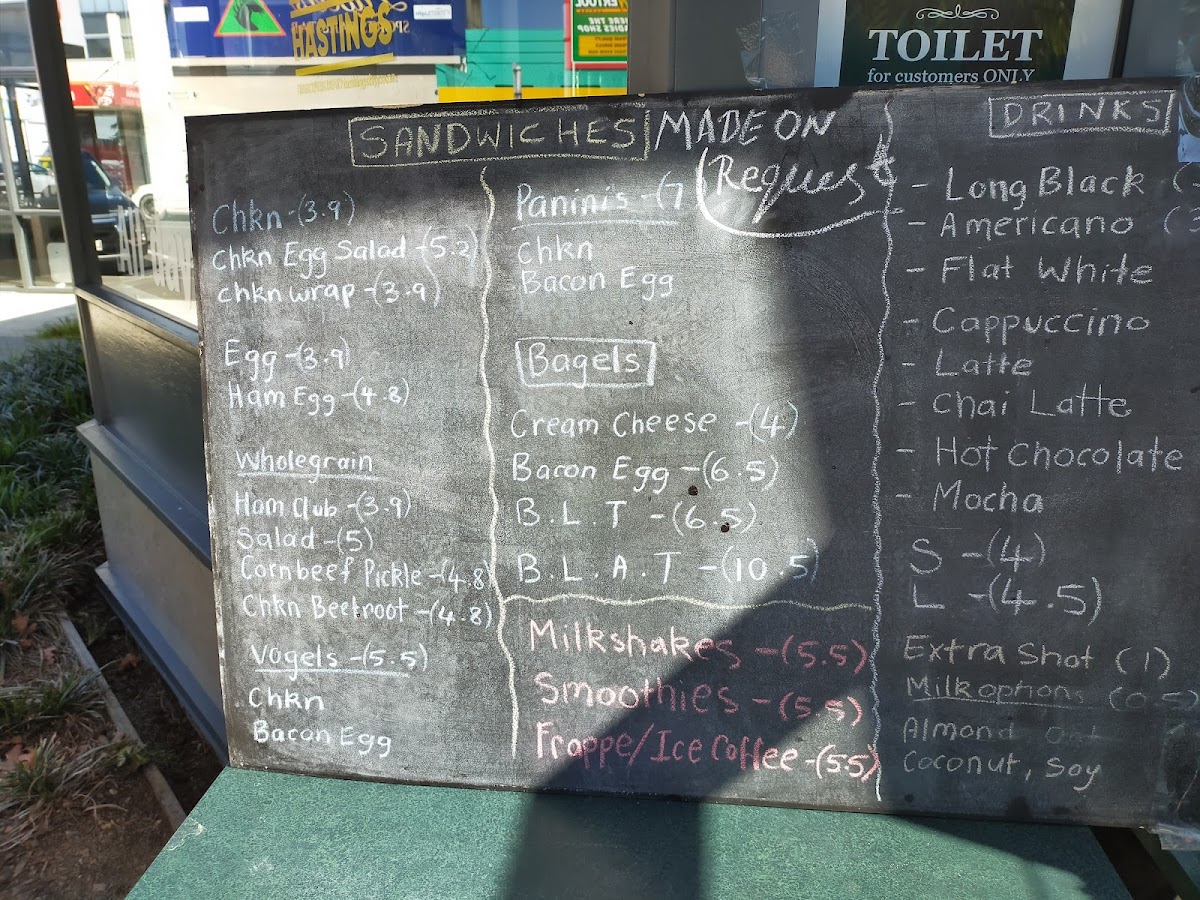 HASTINGS
TOILET
for customers ONLY
SANDWICHES MADE ON Request
Chkn-(3.9)
Chkn Egg Salad-(5.2)
Chkn wrap-(3.9)
Egg-(3.9)
Ham Egg-(4.8)
Wholegrain
Ham Club-(3.9)
Salad-(5)
Cornbeef Pickle-(4.8)
Chkn Beetroot-(4.8)
Vogels-(5.5)
Chkn
Bacon Egg
Paninis-(7
Chkn
Bacon Egg
Bagels
Cream Cheese-(4)
Bacon Egg-(6.5)
B.L.T-(6.5)
B.L.A.T-(10.5)
Milkshakes-(5.5)
Smoothies-(5.5)
Frappe/Ice Coffee-(5.5)
DRINKS
- Long Black
- Americano
- Flat White
- Cappuccino
- Latte
- Chai Latte
- Hot Chocolate
- Mocha
S-(4)
L-(4.5)
Extra Shot (1)
Milkophons (0.5)
Almond Oat
Coconut, Soy